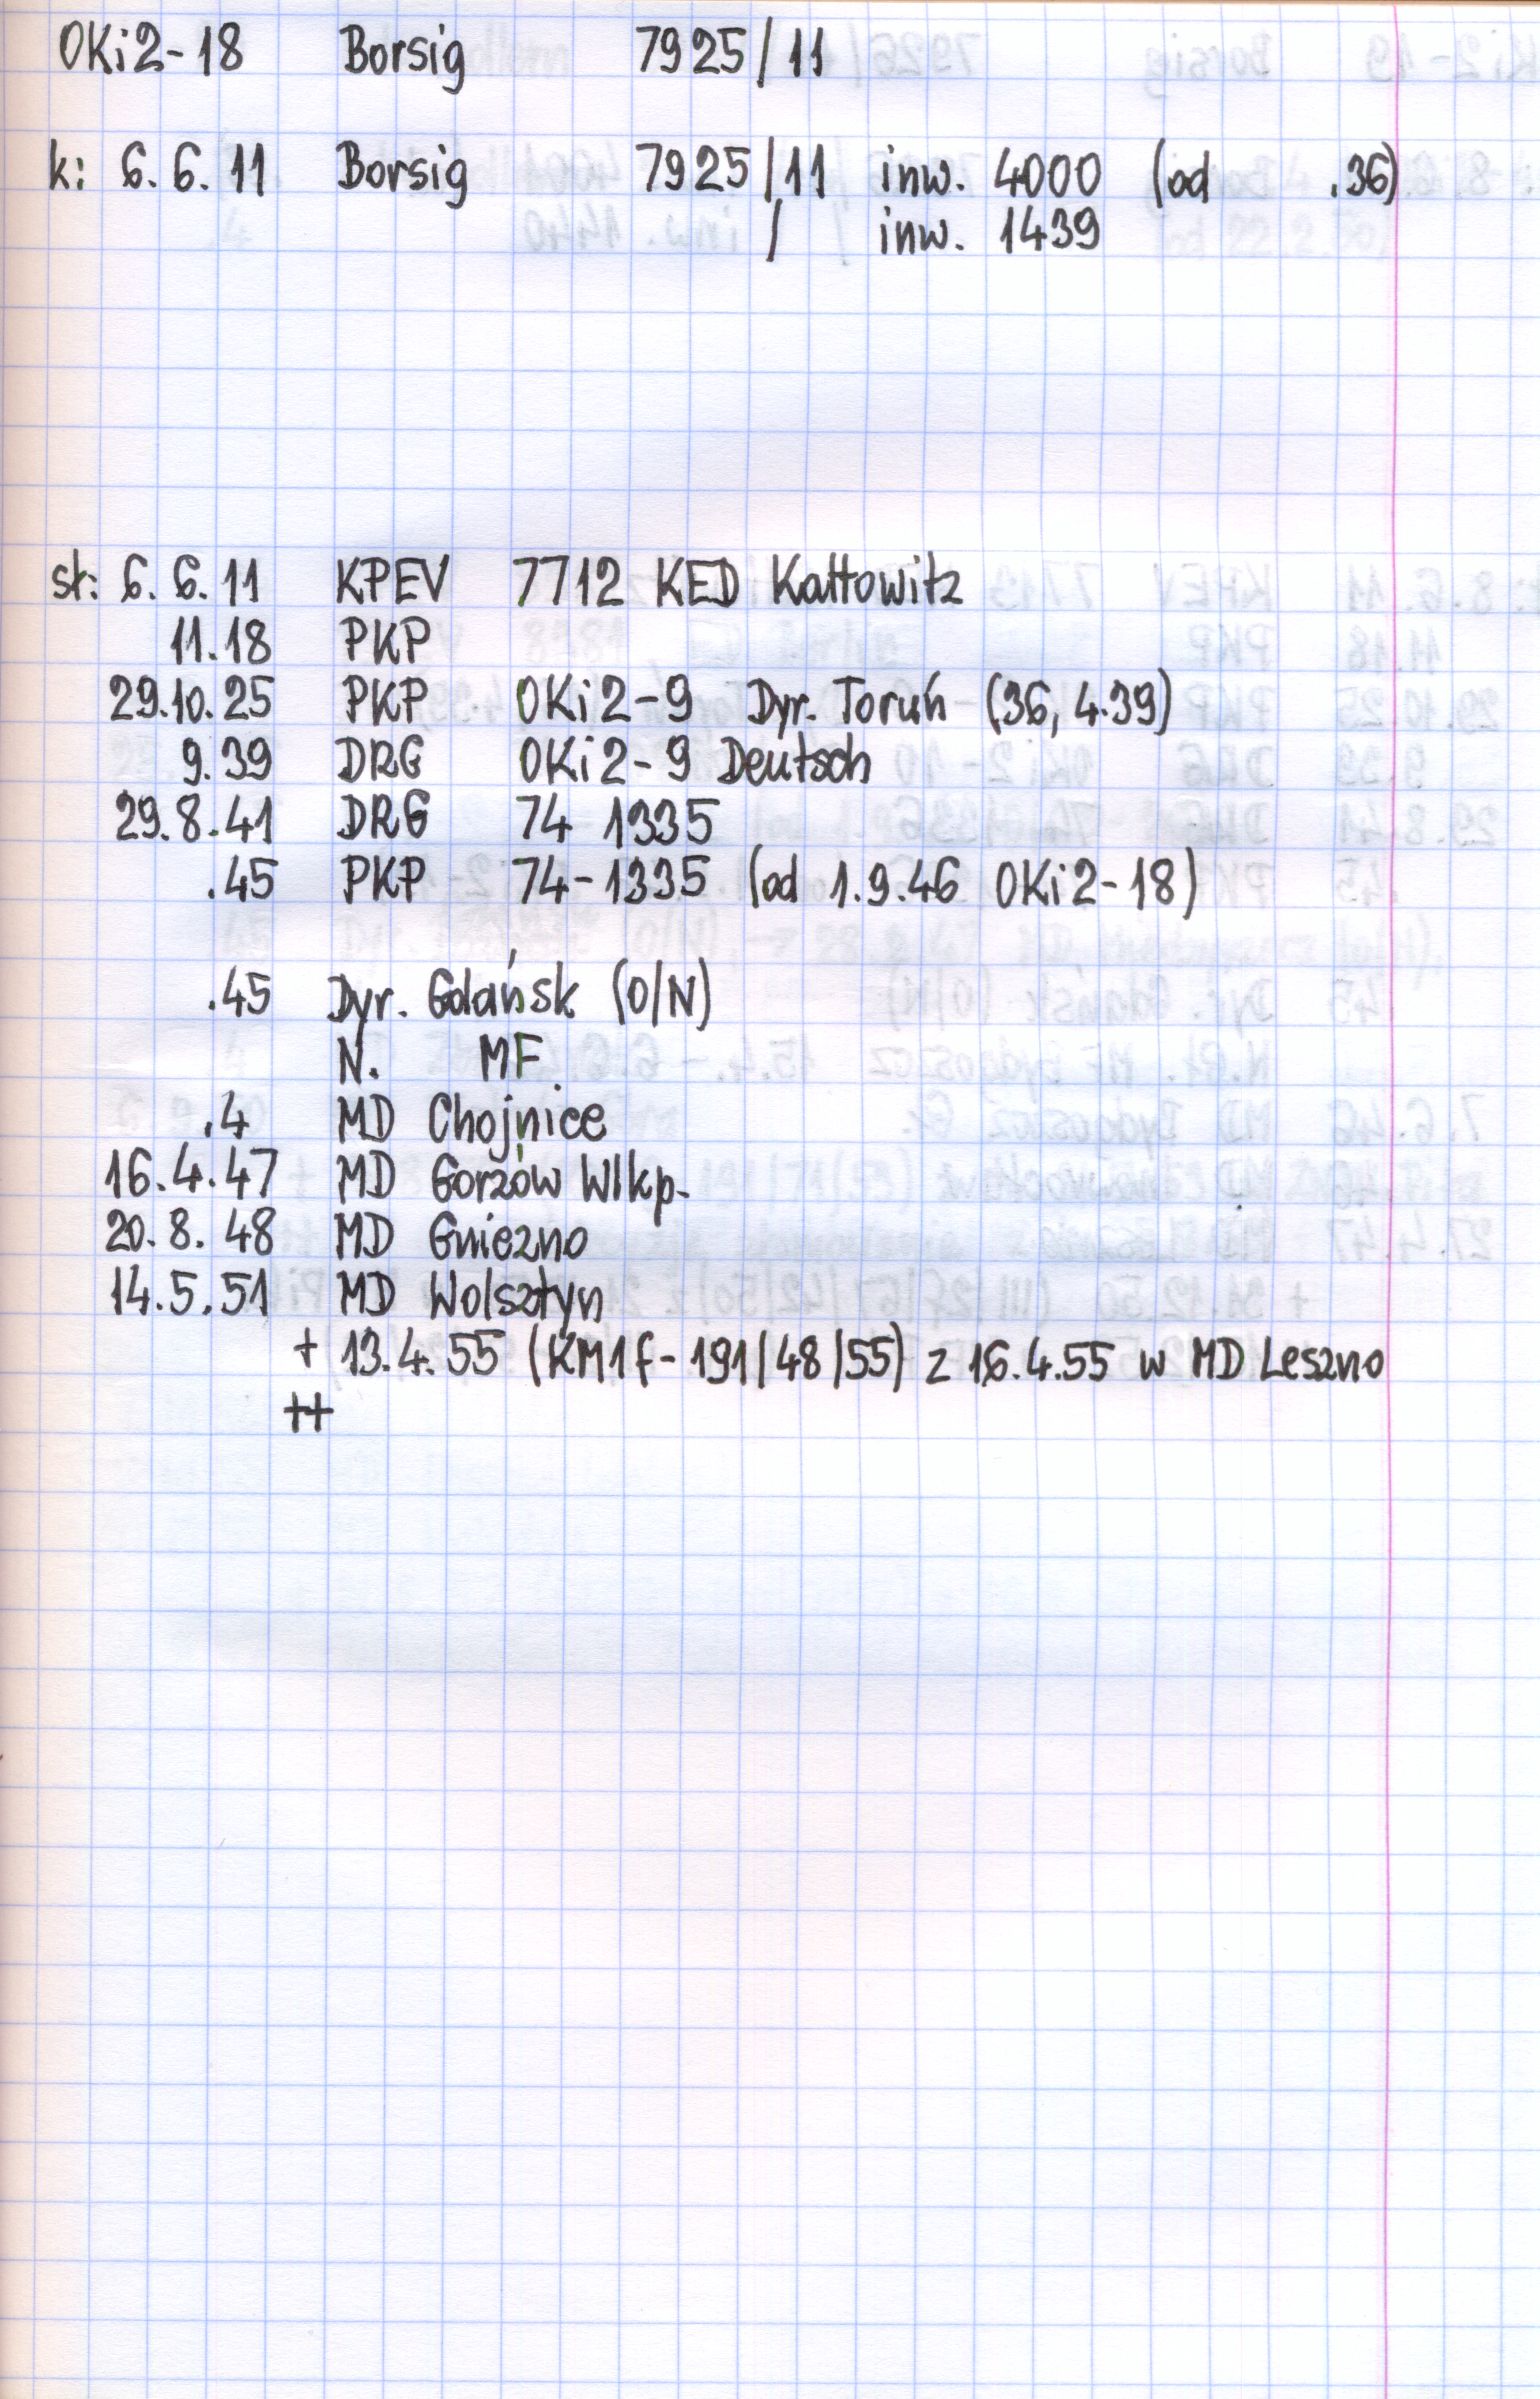 OKi2-18 Borsig 7925/11
k: 6.6.11 Borsig 7925/11 inw. 4000 (od .36)
/ inw. 1439
st: 6.6.11 KPEV 7712 KED Kattowitz
11.18 PKP
29.10.25 PKP OKi2-9 Dyr. Toruń (36, 4.39)
9.39 DRG OKi2-9 Deutsch
29.8.41 DRG 74 1335
.45 PKP 74-1335 (od 1.9.46 OKi2-18)
.45 Dyr. Gdańsk (O/N)
N. MF
.4 MD Chojnice
16.4.47 MD Gorzów Wlkp.
20.8.48 MD Gniezno
14.5.51 MD Wolsztyn
+ 13.4.55 (KM1f-191/48/55) z 16.4.55 w MD Leszno
++